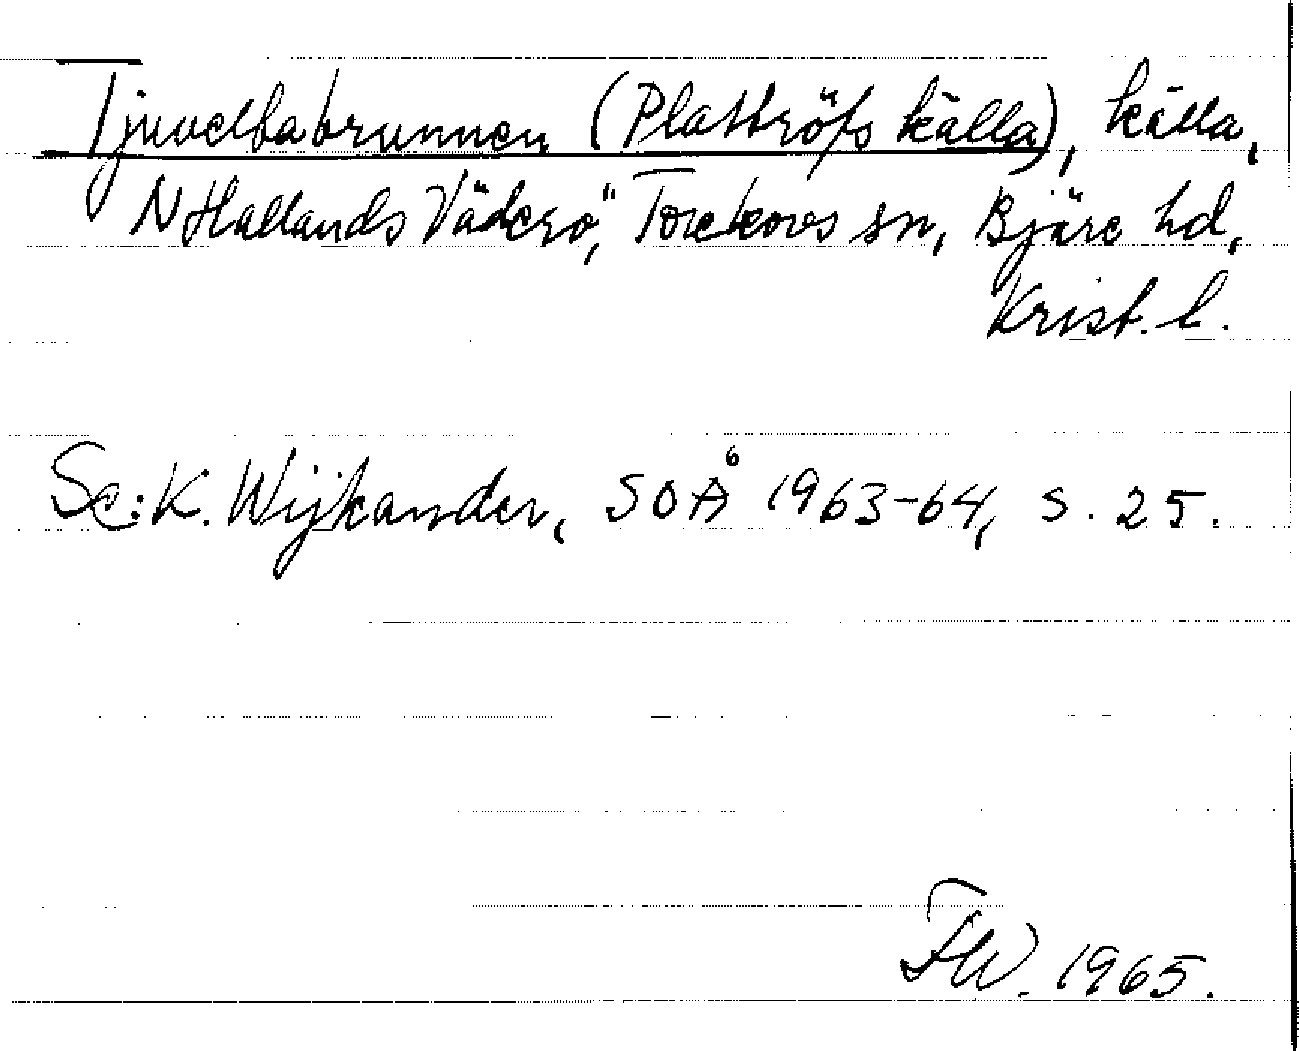 Tjuvelbabrunnen (Plattröfs källa), källa,
N Hallands Väderö, Torekovs sn, Bjäre hd,
Krist. l.
Se: K. Wijkander, SOÅ 1963-64, s. 25.
FW. 1965.